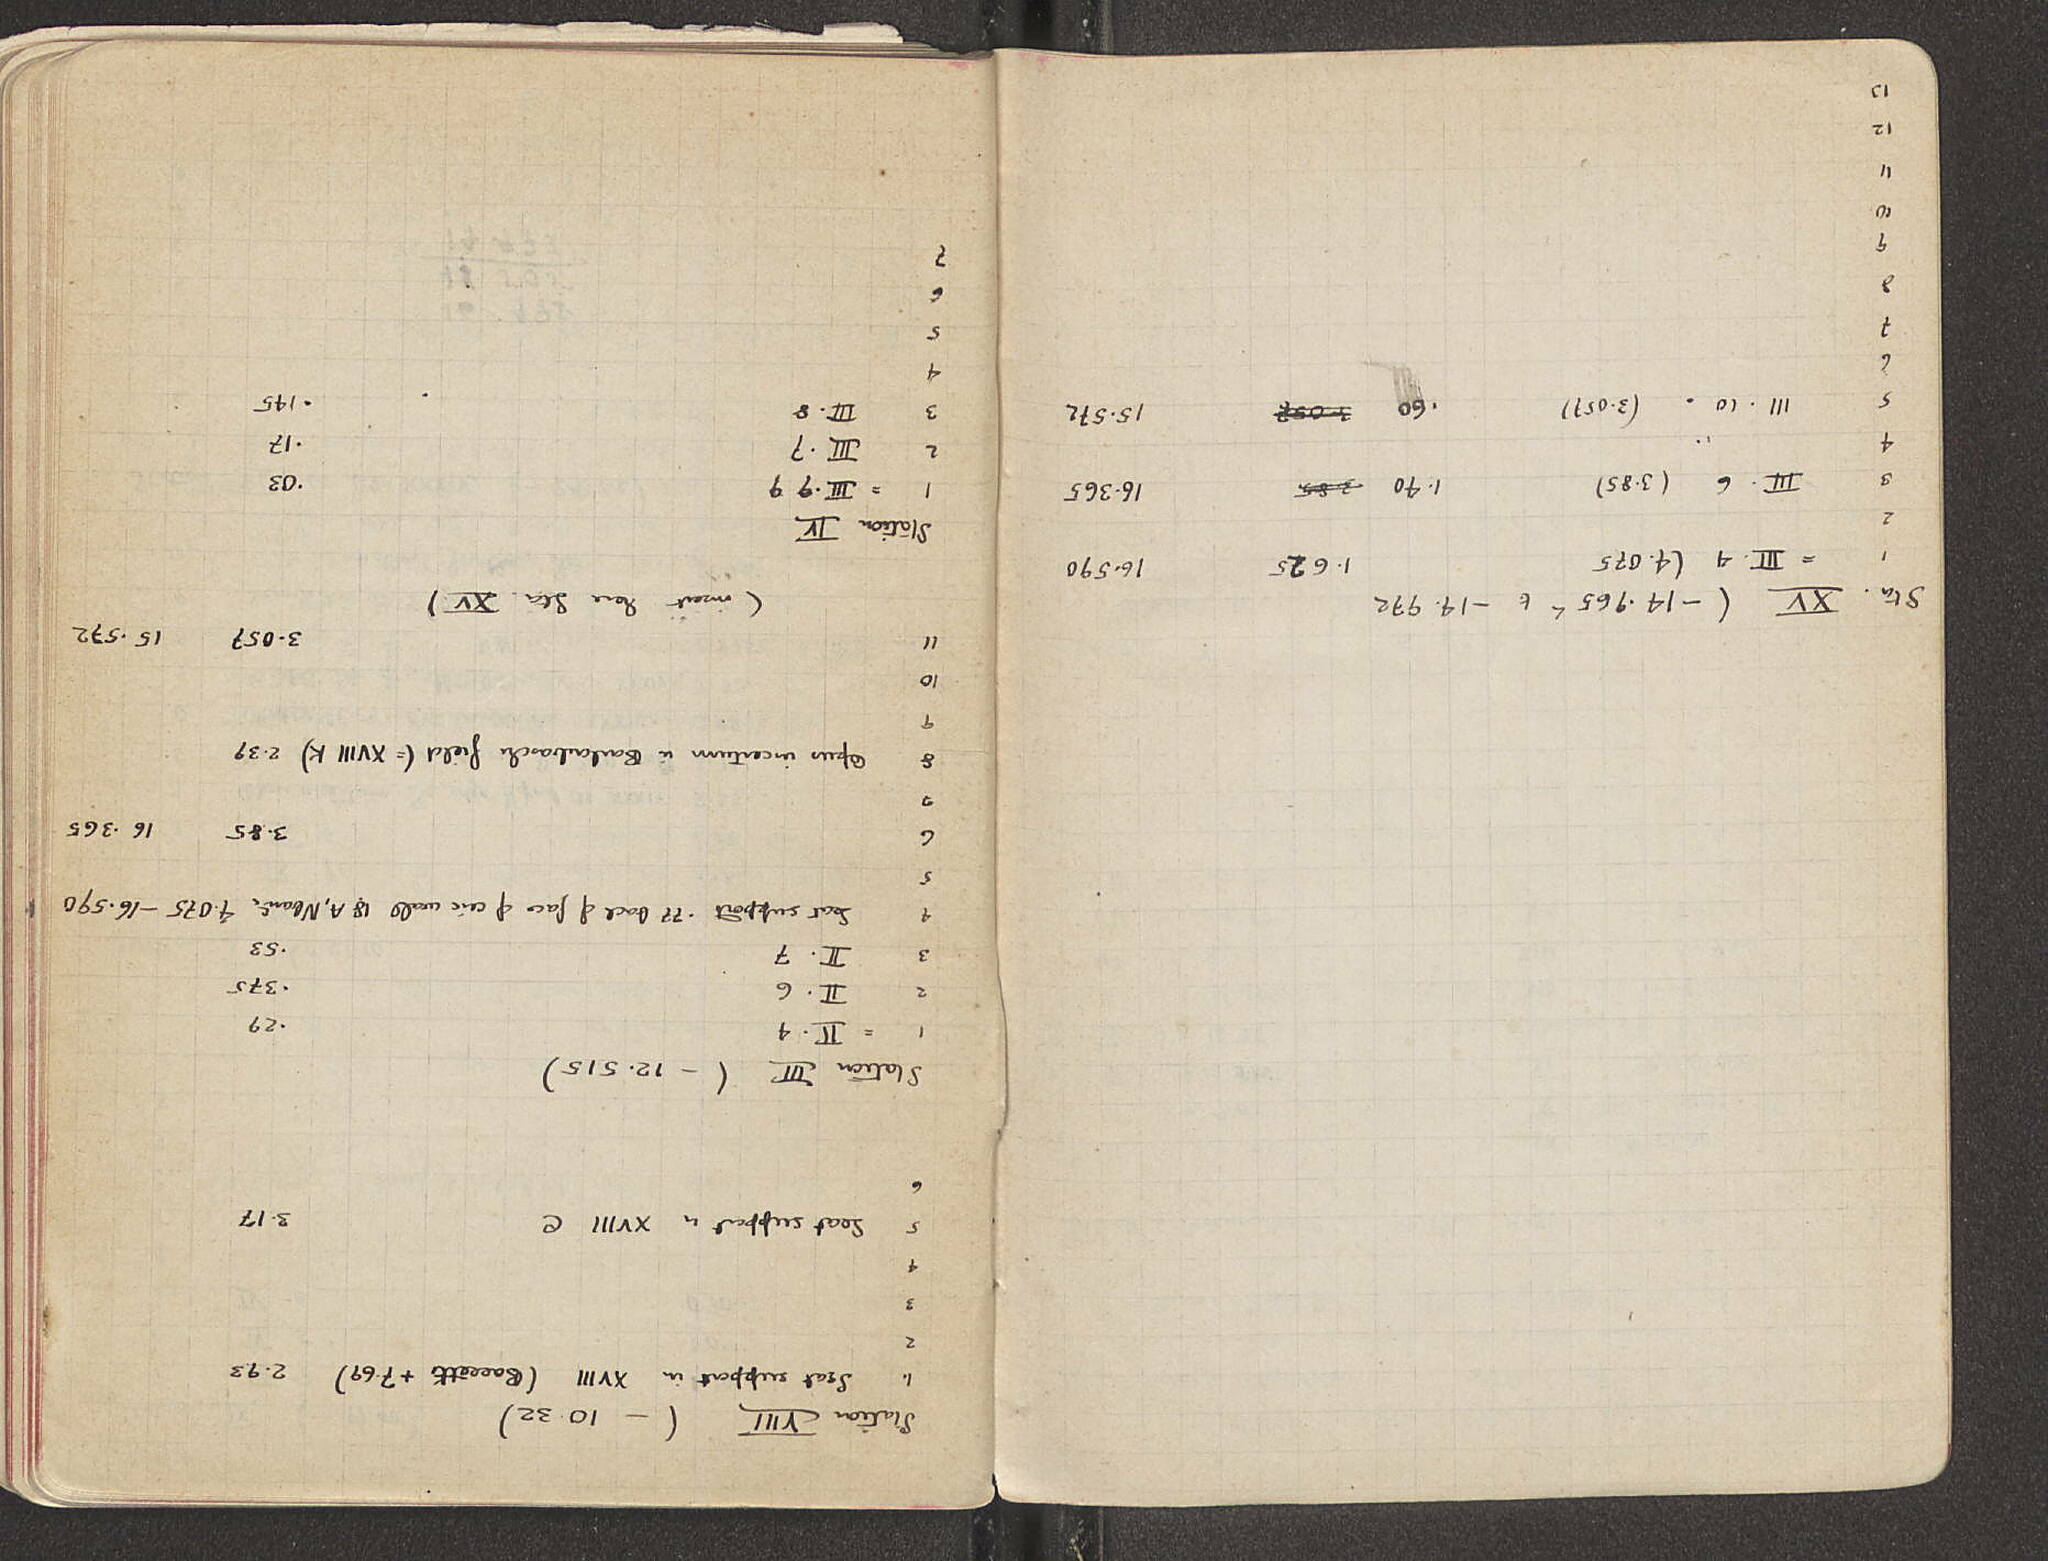 Sta. XV (-14.965 -14.972
1 = III.4 (4.075 1.625 16.590
2
3 III.6 (3.85) 1.40 3.85 16.365
4 "
5 III.10. (3.057) .60 3.057 15.572
6
7
8
9
10
11
12
13
Station VIII (- 10.32)
1. Seat support in XVIII ( + 7.69) 2.93
2
3
4
5 Seat support in XVIII C 3.17
6
Station III (- 12.515)
1 = II.4 .29
2 II.6 .375
3 II.7 .53
4 Seat support .77 back of face of circ wall 18 A, 4.075 -16.590
5
6 3.85 16.365
7
8 Opus incertum in field (= XVIII K) 2.39
9
10
11 3.057 15.572
(insert here Sta. XV)
Station IV
1 = III.9 9 .03
2 III.7 .17
3 III.8 .145
4
5
6
7